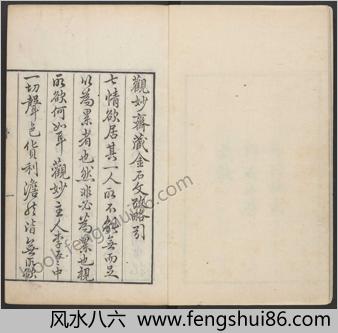 觀妙齋藏金石文攷略引
七情欲居其一人所不能無而足
以為累者也然非必為累也視
所欲何如耳觀妙主人李君中
一切聲色貨利澹然皆無所欲
book.fengshui86.com
风水八六 - www.fengshui86.com